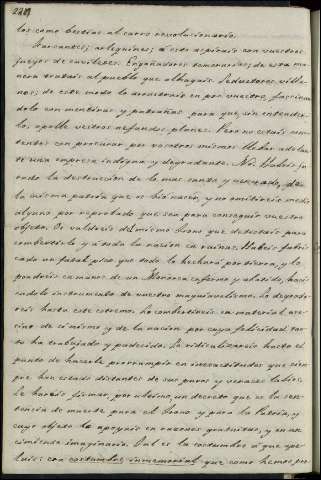 los como bestias al carro revolucionario.
Farsantes; arlequines; á esto aspirais con vuestros
juegos de cubiletes. Engañadores temerarios; de esta ma
nera tratais al pueblo que alhagais. Seductores villa
nos; de este modo lo arrastrais en pos vuestro, fascinan
dolo con mentiras y patrañas para que, sin entender
los, apoye vuestros nefandos planes. Pero no estais con
tentos con procurar por vosotros mismos llevar adelan
te una empresa indigna y degradante. No. Habeis ju
rado la destruccion de lo mas santo y venerado, de
la misma patria que os hió nacer, y no omitireis medio
alguno por reprobado que sea para conseguir vuestro
objeto. Os valdreis del mismo Trono que detestais para
combatirlo y á toda la nacion en ruinas. Habeis fabri
cado un fatal piso que todo lo hechará por tierra, y lo
pondreis en manos de un Monarca enfermo y abatido, hacién
dolo instrumento de vuestro maquiavelismo. Lo degrada
reis hasta este estremo. Lo combertireis en material ase
cino de si mismo y de la nacion por cuya felicidad tan
to ha trabajado y padecido. Lo ridiculizareis hasta el
punto de hacerle prorrumpir en inecsactitudes que siem
pre han estado distantes de sus puros y veraces labios.
Le hareis firmar, por ultimo, un decreto que es la sen
tencia de muerte para el Trono y para la Patria, y
cuyo objeto lo apoyais en razones gratuitas, y en un
cimiento imaginario. Tal es la costumbre á que ape
lais: con costumbre inmemorial que como hemos pro